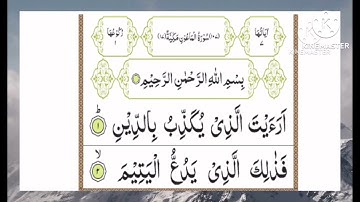 اٰیَاتُهَا ٧
(١٠٧) سُوْرَةُ الْمَاعُوْنِ مَكِّیَّةٌ (١٧)
رُكُوْعُهَا ١
KINEMASTER
بِسْمِ اللهِ الرَّحْمٰنِ الرَّحِیْمِ
اَرَءَیْتَ الَّذِیْ یُكَذِّبُ بِالدِّیْنِ ؕ﴿١﴾
فَذٰلِكَ الَّذِیْ یَدُعُّ الْیَتِیْمَ ۙ﴿٢﴾